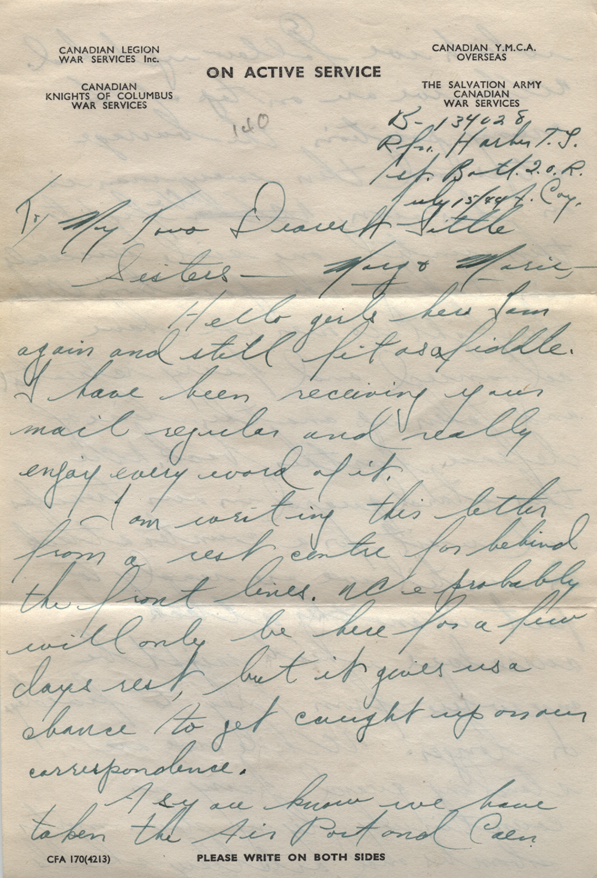 CANADIAN LEGION
WAR SERVICES Inc.
CANADIAN
KNIGHTS OF COLUMBUS
WAR SERVICES
ON ACTIVE SERVICE
CANADIAN Y.M.C.A.
OVERSEAS
THE SALVATION ARMY
CANADIAN
WAR SERVICES
140
B-134028
Rfn. T. J.
1st. Batt. Q.O.R.
July 15/44 A. Coy.
To My Two Dearest Little
Sisters — Mary & Marie,—
Hello girls here I am
again and still fit as a fiddle.
I have been receiving your
mail regular and really
enjoy every word of it.
I am writing this letter
from a rest centre far behind
the front lines. We probably
will only be here for a few
days rest, but it gives us a
chance to get caught up on our
correspondence.
As you know we have
taken the Air Port and Caen
CFA 170(4213)
PLEASE WRITE ON BOTH SIDES